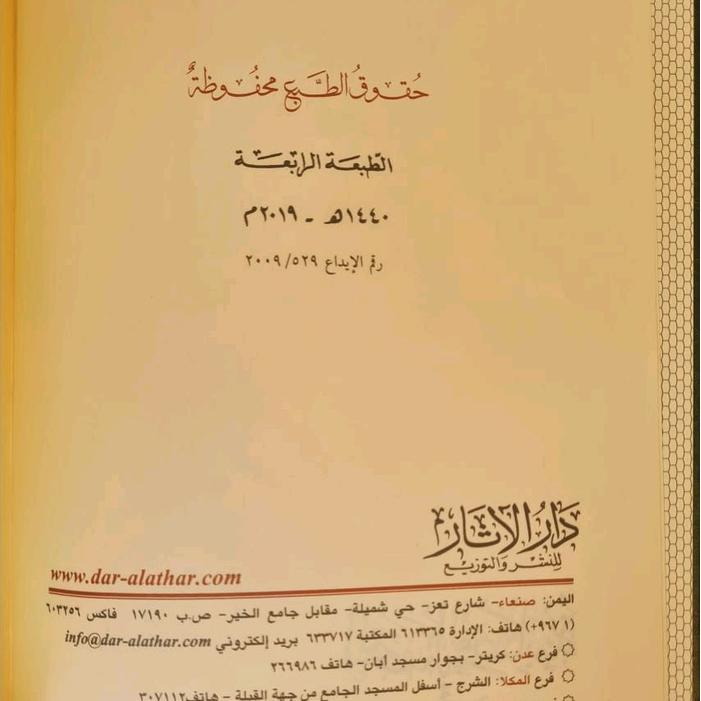 حُقُوقُ الطَّبْعِ مَحْفُوظَةٌ
الطبعَة الرابعَة
١٤٤٠هـ - ٢٠١٩م
رقم الإيداع ٢٠٠٩/٥٢٩
دَارُ الآثَار
للنشر والتوزيع
www.dar-alathar.com
اليمن: صنعاء- شارع تعز- حي شميلة- مقابل جامع الخير- ص.ب ١٧١٩٠ فاكس ٦٠٣٢٥٦
(٩٦٧ ١+) هاتف: الإدارة ٦١٣٣٦٥ المكتبة ٦٣٣٧١٧ بريد إلكتروني info@dar-alathar.com
فرع عدن: كريتر- بجوار مسجد أبان- هاتف ٢٦٦٩٨٦
فرع المكلا: الشرج - أسفل المسجد الجامع من جهة القبلة - هاتف٣٠٧١١٢